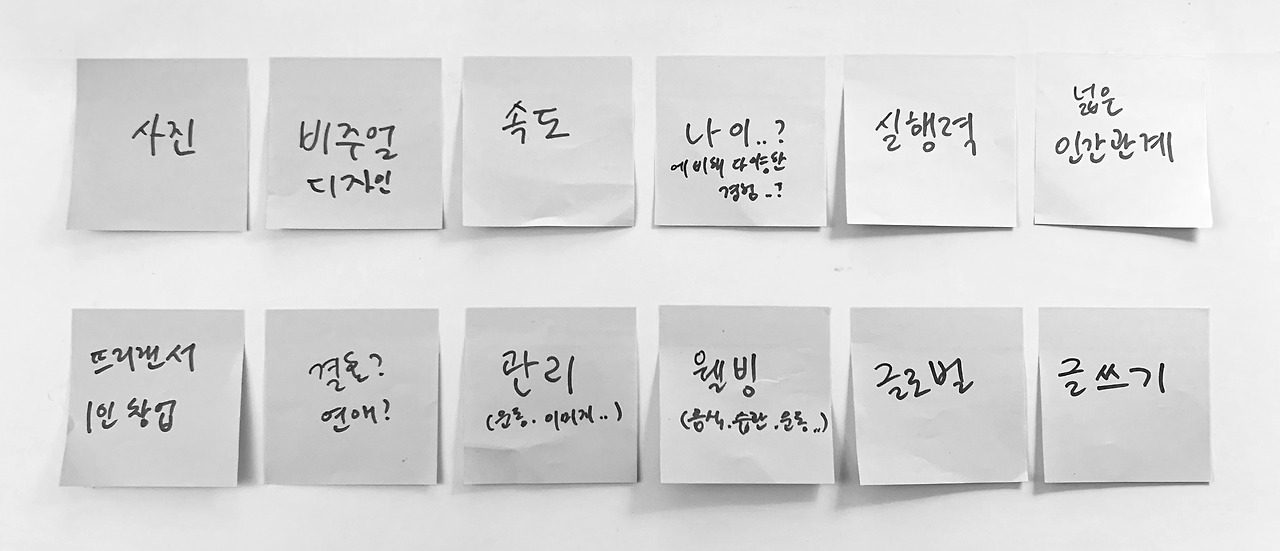 사진
비주얼
디자인
속도
나이..?
에 비해 다양한
경험..?
실행력
넓은
인간관계
프리랜서
1인 창업
결혼?
연애?
관리
(운동. 이미지..)
웰빙
(음식.습관.운동..)
글로벌
글쓰기